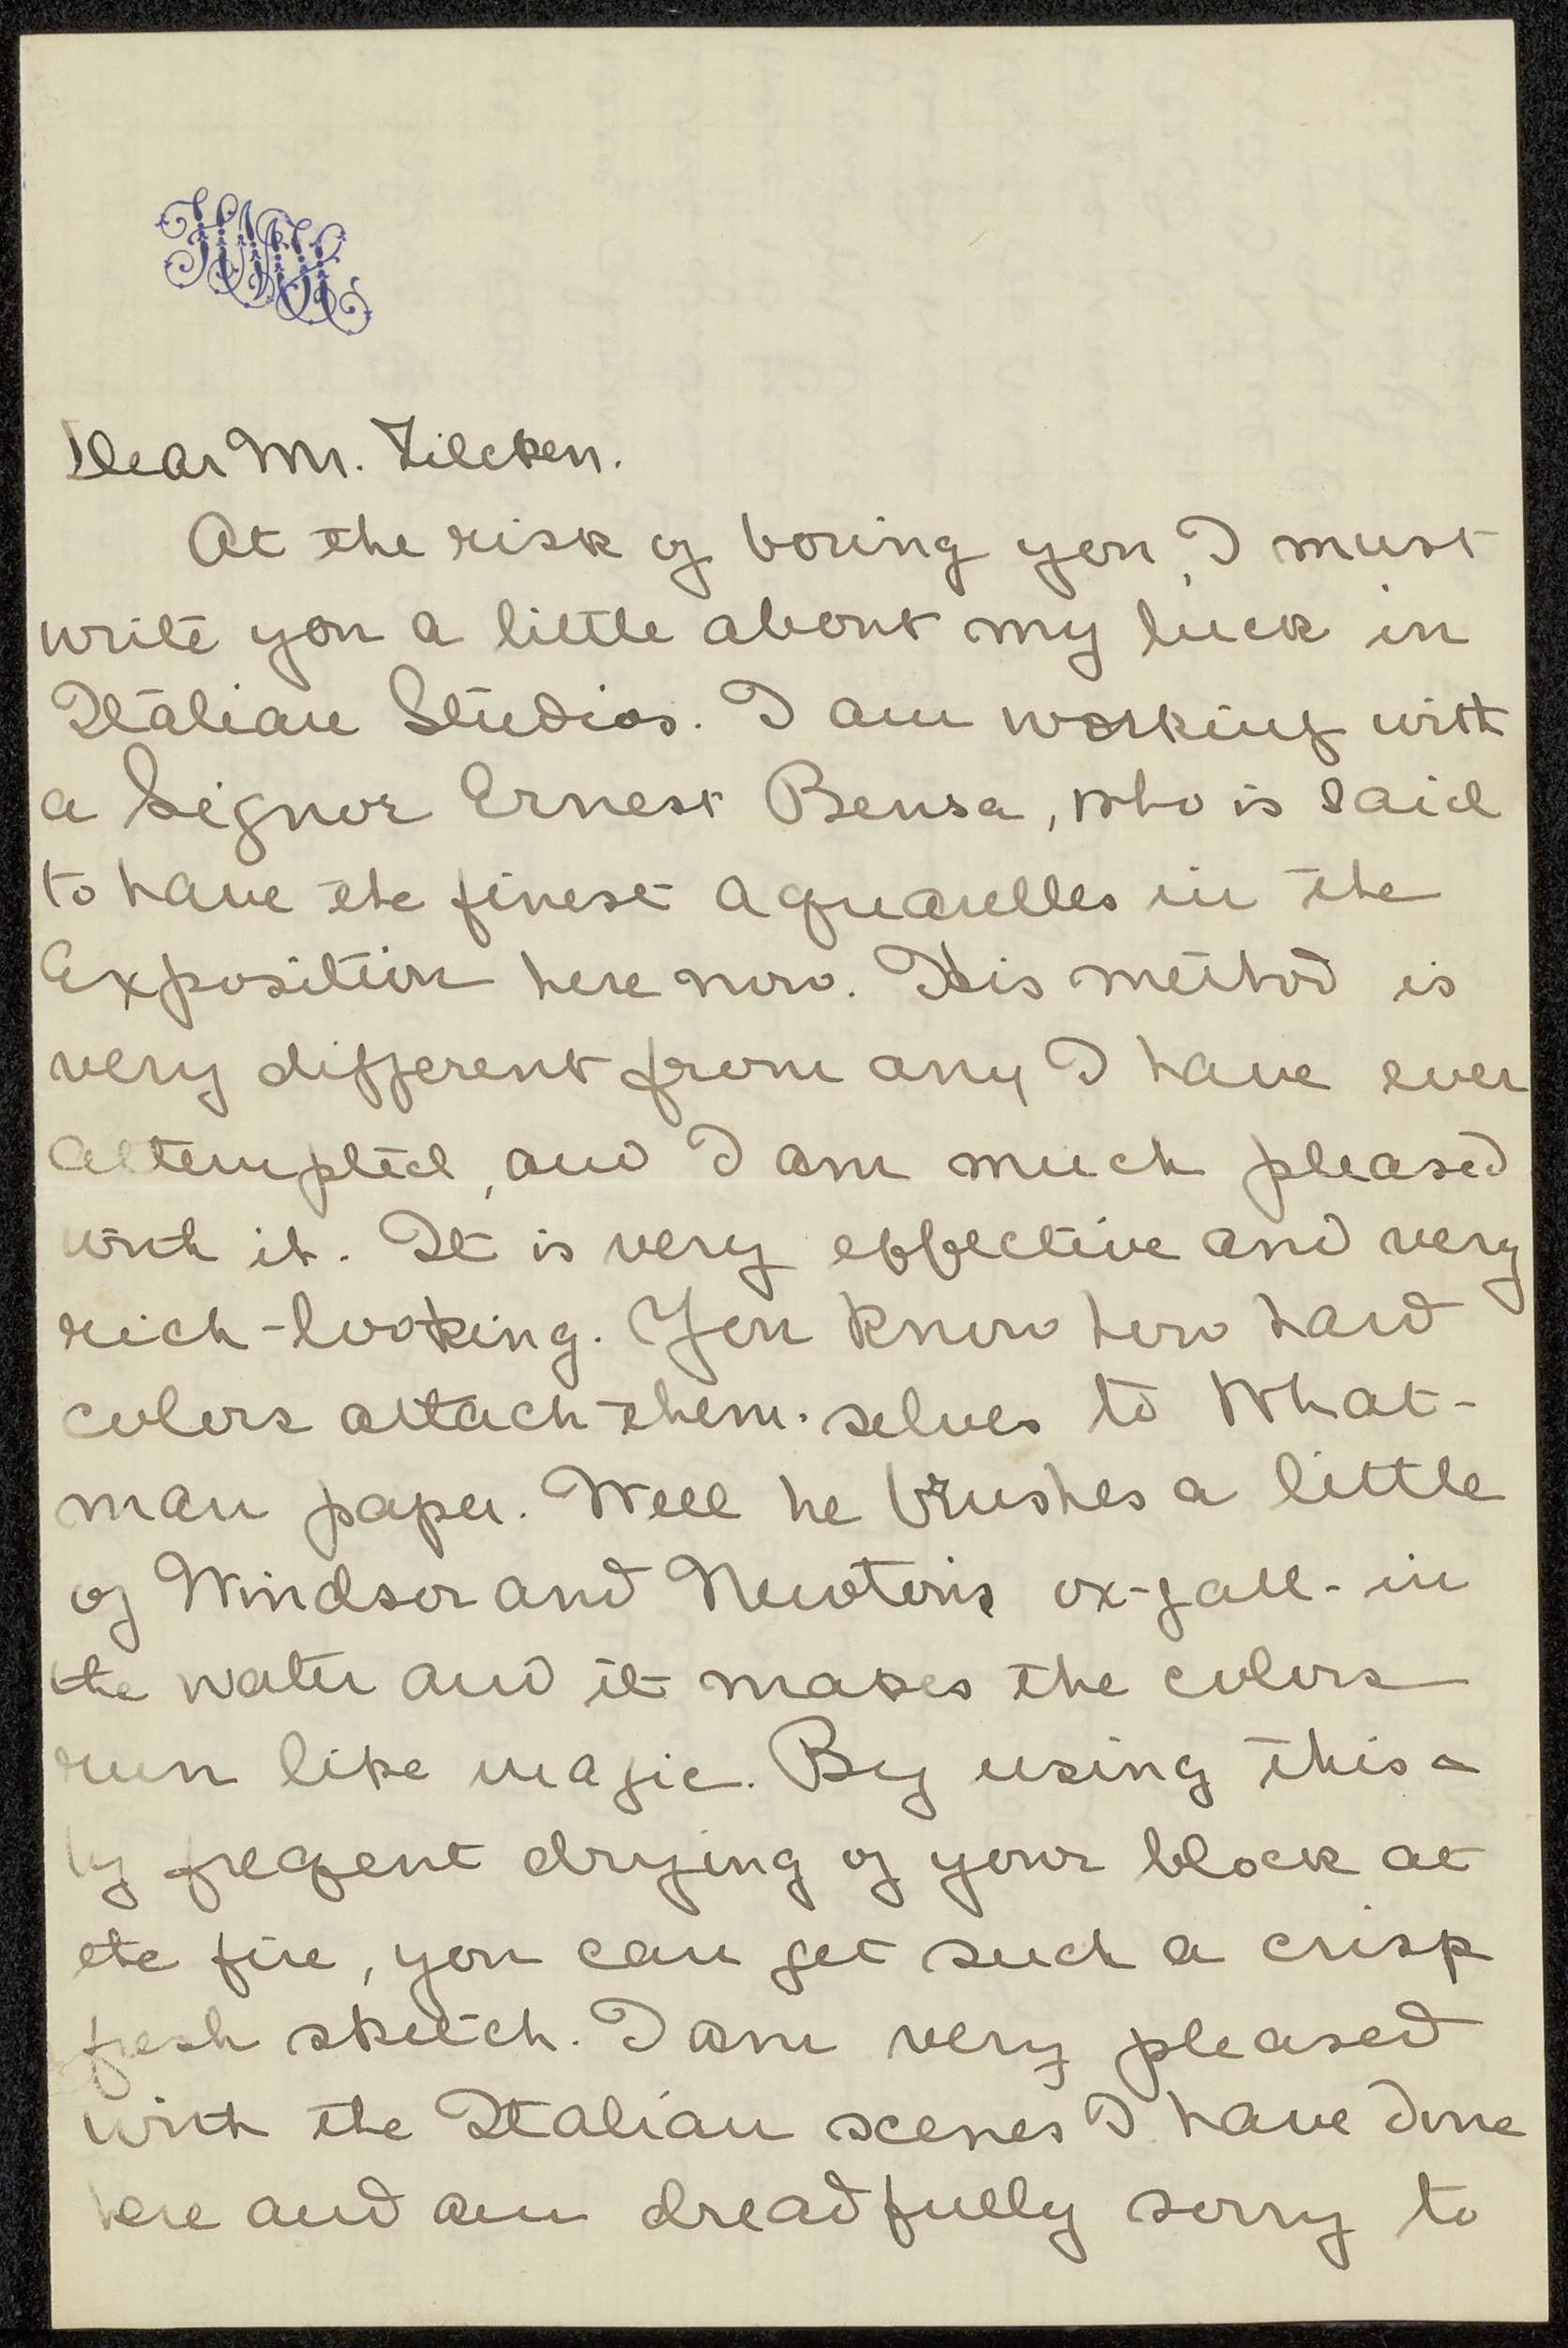 Dear Mr. Zilcken.
At the risk of boring you, I must
write you a little about my luck in
Italian Studios. I am working with
a Signor Ernest Bensa, who is said
to have the finest aquarelles in the
Exposition here now. His method is
very different from any I have ever
attempted, and I am much pleased
with it. It is very effective and very
rich-looking. You know how hard
colors attach them-selves to What-
man paper. Well he brushes a little
of Windsor and Newton's ox-gall- in
the water and it makes the colors
run like magic. By using this &
by freqent drying of your block at
the fire, you can get such a crisp
fresh sketch. I am very pleased
with the Italian scenes I have done
here and am dreadfully sorry to